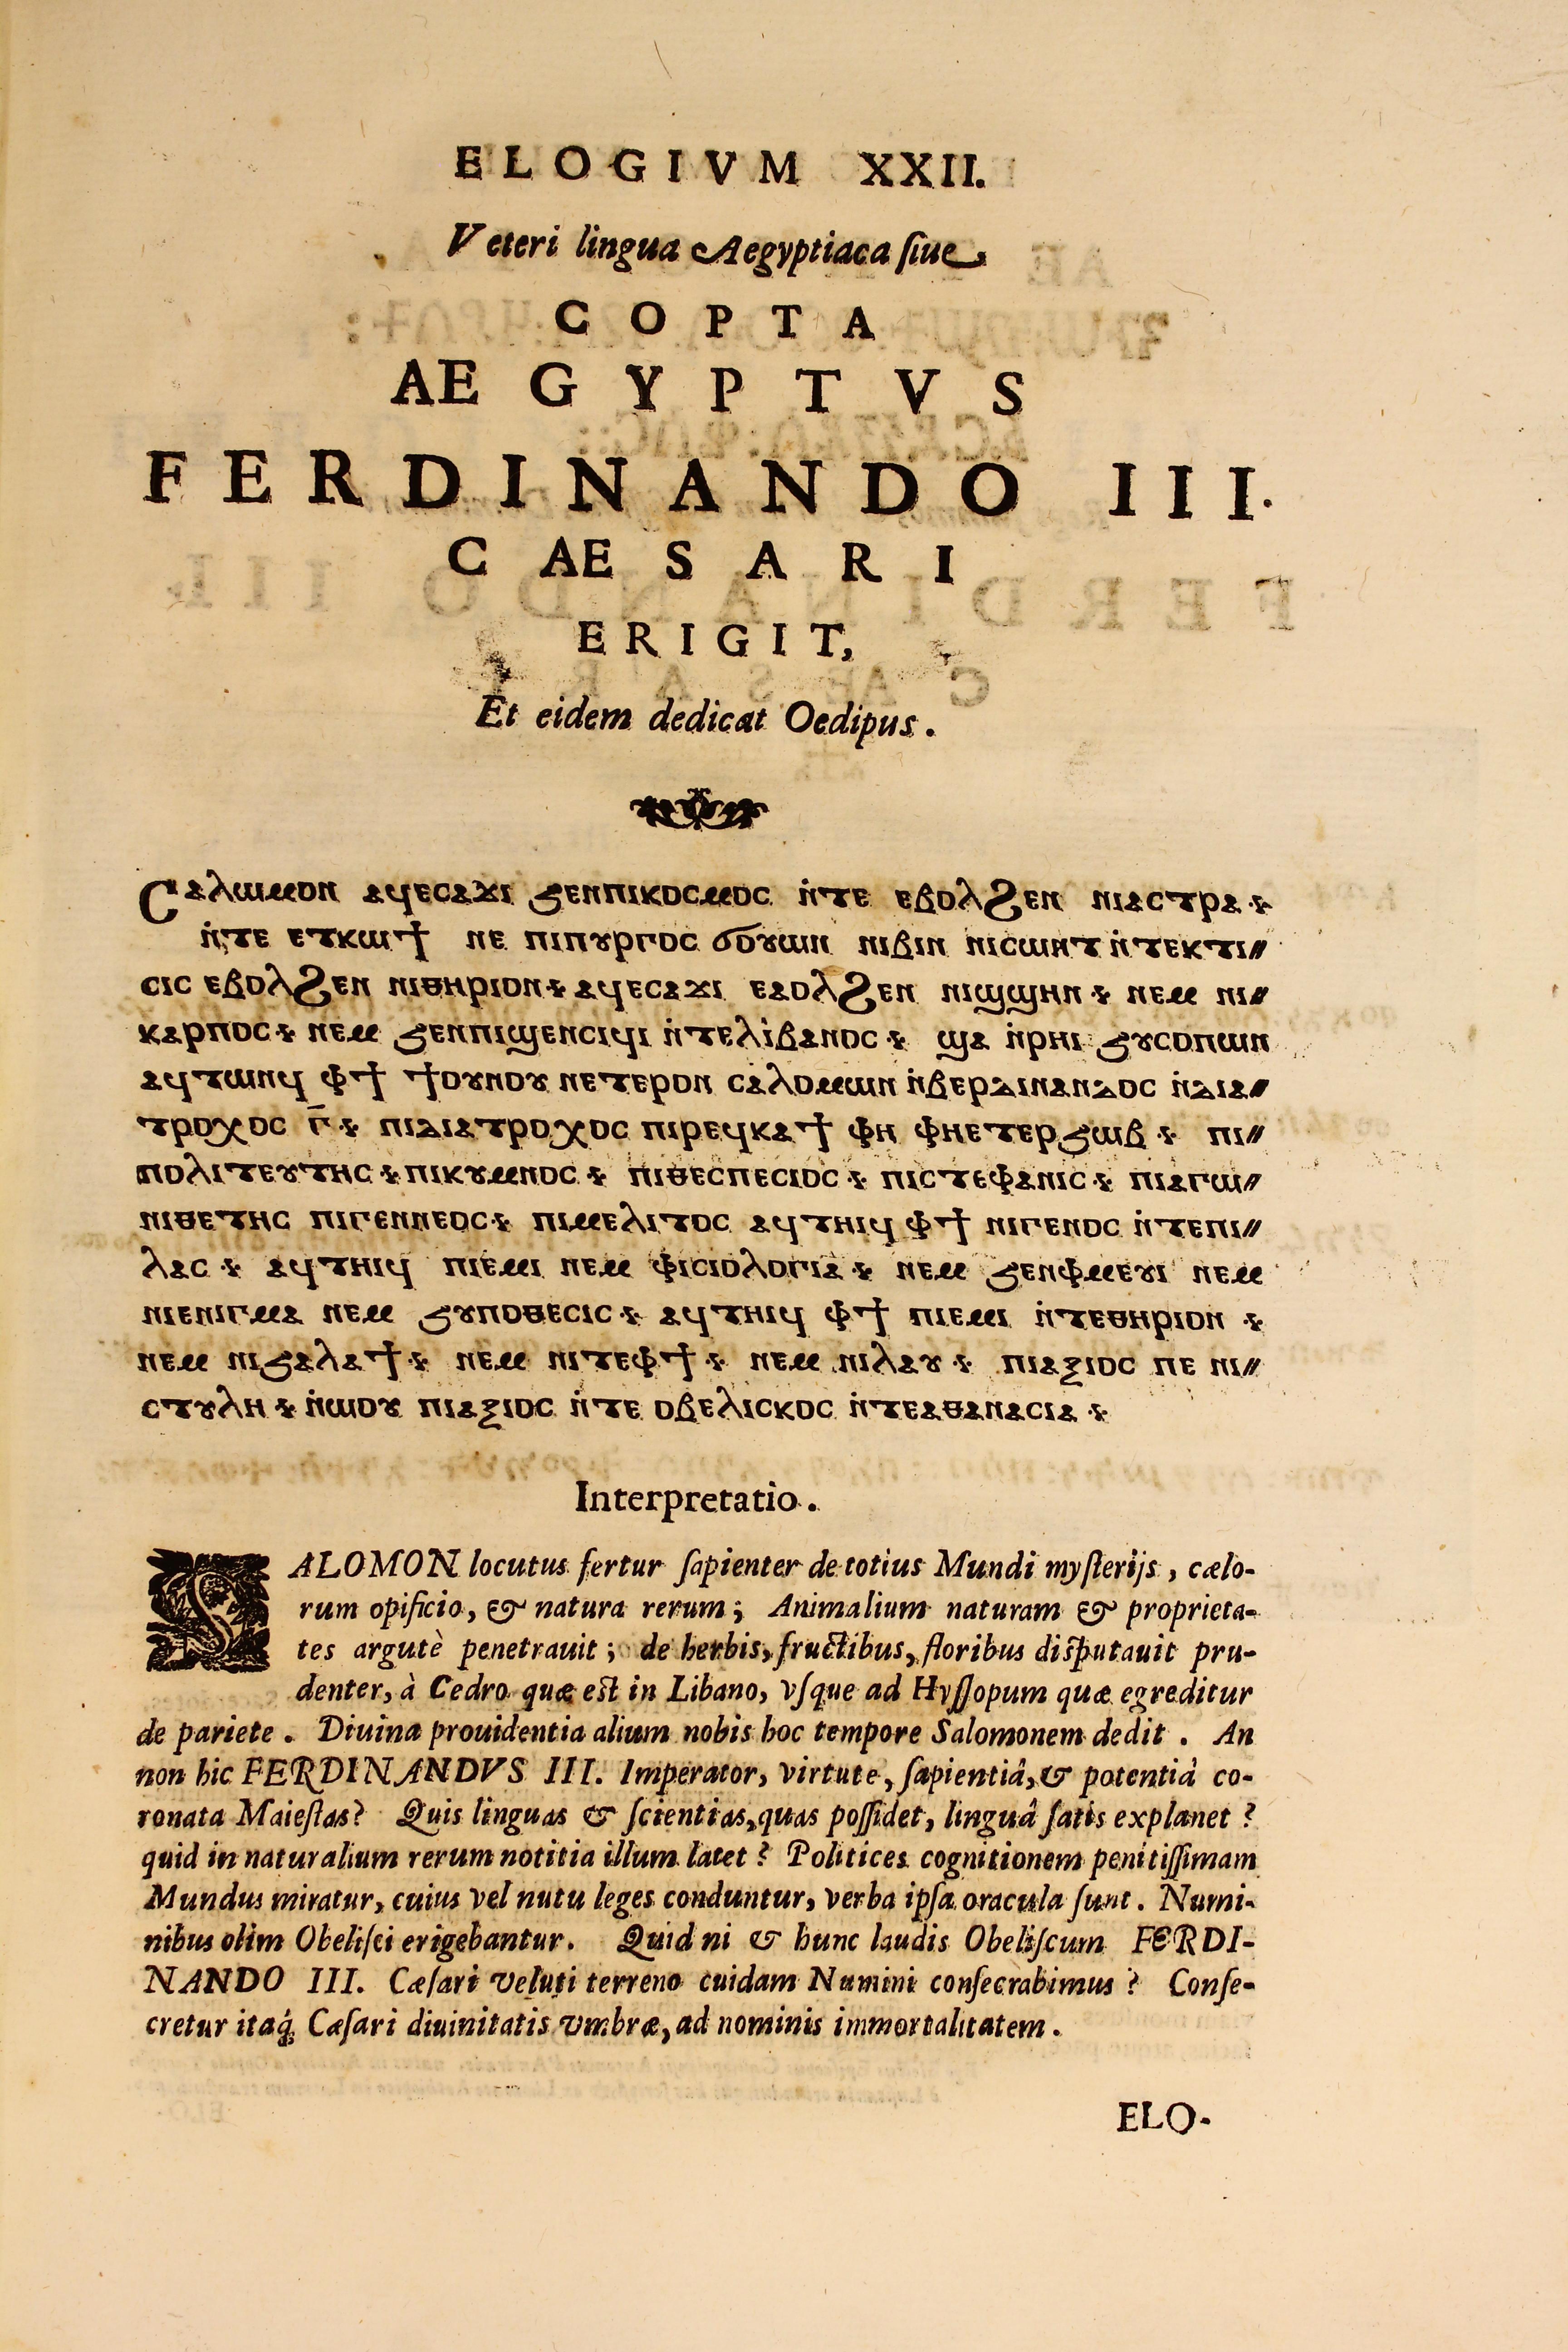 ELOGIVM XXII.
Veteri lingua Aegyptiaca ſiue
COPTA
AEGYPTVS
FERDINANDO III.
CAESARI
ERIGIT,
Et eidem dedicat Oedipus.
Ⲥⲁⲗⲱⲙⲟⲛ ⲁϥⲉⲥⲁϫⲓ ϩⲉⲛⲡⲓⲕⲟⲥⲙⲟⲥ ⲛ̇ⲧⲉ ⲉⲃⲟⲗϧⲉⲛ ⲛⲓⲁⲥⲧⲣⲁ·
ⲛ̇ⲧⲉ ⲉⲧⲕⲱϯ ⲛⲉ ⲡⲓⲡⲩⲣⲅⲟⲥ ϭⲟⲩⲱⲛ ⲛⲓⲃⲓⲛ ⲛⲓⲥⲱⲛⲧ ⲛ̇ⲧⲉⲕⲧⲓ⸗
ⲥⲓⲥ ⲉⲃⲟⲗϧⲉⲛ ⲛⲓⲑⲏⲣⲓⲟⲛ· ⲁϥⲉⲥⲁϫⲓ ⲉⲇⲟⲗϧⲉⲛ ⲛⲓϣϣⲏⲛ· ⲛⲉⲙ ⲛⲓ⸗
ⲕⲁⲣⲡⲟⲥ· ⲛⲉⲙ ϩⲉⲛⲡⲓϣⲉⲛⲥⲓϥⲓ ⲛ̇ⲧⲉⲗⲓ̇ⲃⲁⲛⲟⲥ· ϣⲁ ⲛ̇ⲣⲏⲓ ϩⲩⲥⲟⲡⲱⲛ
ⲁϥⲧⲱⲛϥ ⲫϯ ϯⲟⲩⲛⲟⲩ ⲛⲉⲧⲉⲣⲟⲛ ⲥⲁⲗⲟⲙⲱⲛ ⲛ̇ⲃⲉⲣⲇⲓⲛⲁⲛⲇⲟⲥ ⲛ̇ⲇⲓⲁ⸗
ⲧⲣⲟⲭⲟⲥ ⲅ̅· ⲡⲓⲇⲓⲁⲧⲣⲟⲭⲟⲥ ⲡⲓⲣⲉϥⲕⲁϯ ⲫⲏ ⲫⲏⲉⲧⲉⲣϩⲱⲃ· ⲡⲓ⸗
ⲡⲟⲗⲓⲧⲉⲩⲧⲏⲥ· ⲡⲓⲕⲩⲙⲛⲟⲥ· ⲡⲓⲑⲉⲥⲡⲉⲥⲓⲟⲥ· ⲡⲓⲥⲧⲉⲫⲁⲛⲓⲥ· ⲡⲓⲁⲅⲱ⸗
ⲛⲓⲑⲉⲧⲏⲥ ⲡⲓⲅⲉⲛⲛⲉⲟⲥ· ⲡⲓⲙⲉⲗⲓⲧⲟⲥ ⲁϥⲧⲏⲓϥ ⲫϯ ⲛⲓⲅⲉⲛⲟⲥ ⲛ̇ⲧⲉⲡⲓ⸗
ⲗⲁⲥ· ⲁϥⲧⲏⲓϥ ⲡⲓⲉⲙⲓ ⲛⲉⲙ ⲫⲓⲥⲓⲟⲗⲟⲅⲓⲁ· ⲛⲉⲙ ϩⲉⲛⲫⲙⲉⲩⲓ ⲛⲉⲙ
ⲛⲓⲉⲛⲓⲅⲙⲁ ⲛⲉⲙ ϩⲩⲡⲟⲑⲉⲥⲓⲥ· ⲁϥⲧⲏⲓϥ ⲫϯ ⲡⲓⲉⲙⲓ ⲛ̇ⲧⲉⲑⲏⲣⲓⲟⲛ·
ⲛⲉⲙ ⲛⲓϩⲁⲗⲁϯ· ⲛⲉⲙ ⲛⲓⲧⲉⲫϯ· ⲛⲉⲙ ⲛⲓⲗⲁⲩ· ⲡⲓⲁⲝⲓⲟⲥ ⲡⲉ ⲛⲓ⸗
ⲥⲧⲩⲗⲏ· ⲛ̇ⲱⲟⲩ ⲡⲓⲁⲝⲓⲟⲥ ⲛ̇ⲧⲉ ⲟⲃⲉⲗⲓⲥⲕⲟⲥ ⲛ̇ⲧⲉⲁⲑⲁⲛⲁⲥⲓⲁ·
Interpretatio.
SALOMON locutus fertur ſapienter de totius Mundi myſterijs, cælo-
rum opificio, & natura rerum; Animalium naturam & proprieta-
tes argutè penetrauit; de herbis, fructibus, floribus diſputauit pru-
denter, à Cedro quæ est in Libano, vſque ad Hyſſopum quæ egreditur
de pariete. Diuina prouidentia alium nobis hoc tempore Salomonem dedit. An
non hic FERDINANDVS III. Imperator, virtute, ſapientiâ, & potentiâ co-
ronata Maieſtas? Quis linguas & ſcientias, quas poſſidet, linguâ ſatis explanet?
quid in naturalium rerum notitia illum latet? Politices cognitionem penitiſſimam
Mundus miratur, cuius vel nutu leges conduntur, verba ipſa oracula ſunt. Numi-
nibus olim Obeliſci erigebantur. Quid ni & hunc laudis Obeliſcum FERDI-
NANDO III. Cæſari veluti terreno cuidam Numini conſecrabimus? Conſe-
cretur itaq́; Cæſari diuinitatis vmbræ, ad nominis immortalitatem.
ELO-